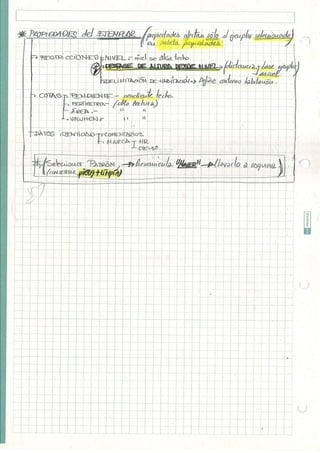 * PROPIEDADES del EJEMPLAR (propiedades afectan sólo al ejemplar seleccionado)
en paleta propiedades.
RESTRICCIONES NIVEL: nivel se ubica techo
DESFASE DE ALTURA DESDE NIVEL → (distancia y base ejemplar
DELIMITACIÓN DE HABITACIÓN → Define contorno habitación.
COTAS PENDIENTE - pendiente techo.
PERÍMETRO - (sólo lectura)
ÁREA - " "
VOLUMEN - " "
DATOS IDENTIDAD COMENTARIOS
MARCA
* (Seleccionar PATRÓN, → herramienta "MOVER" → llevarlo a esquina)